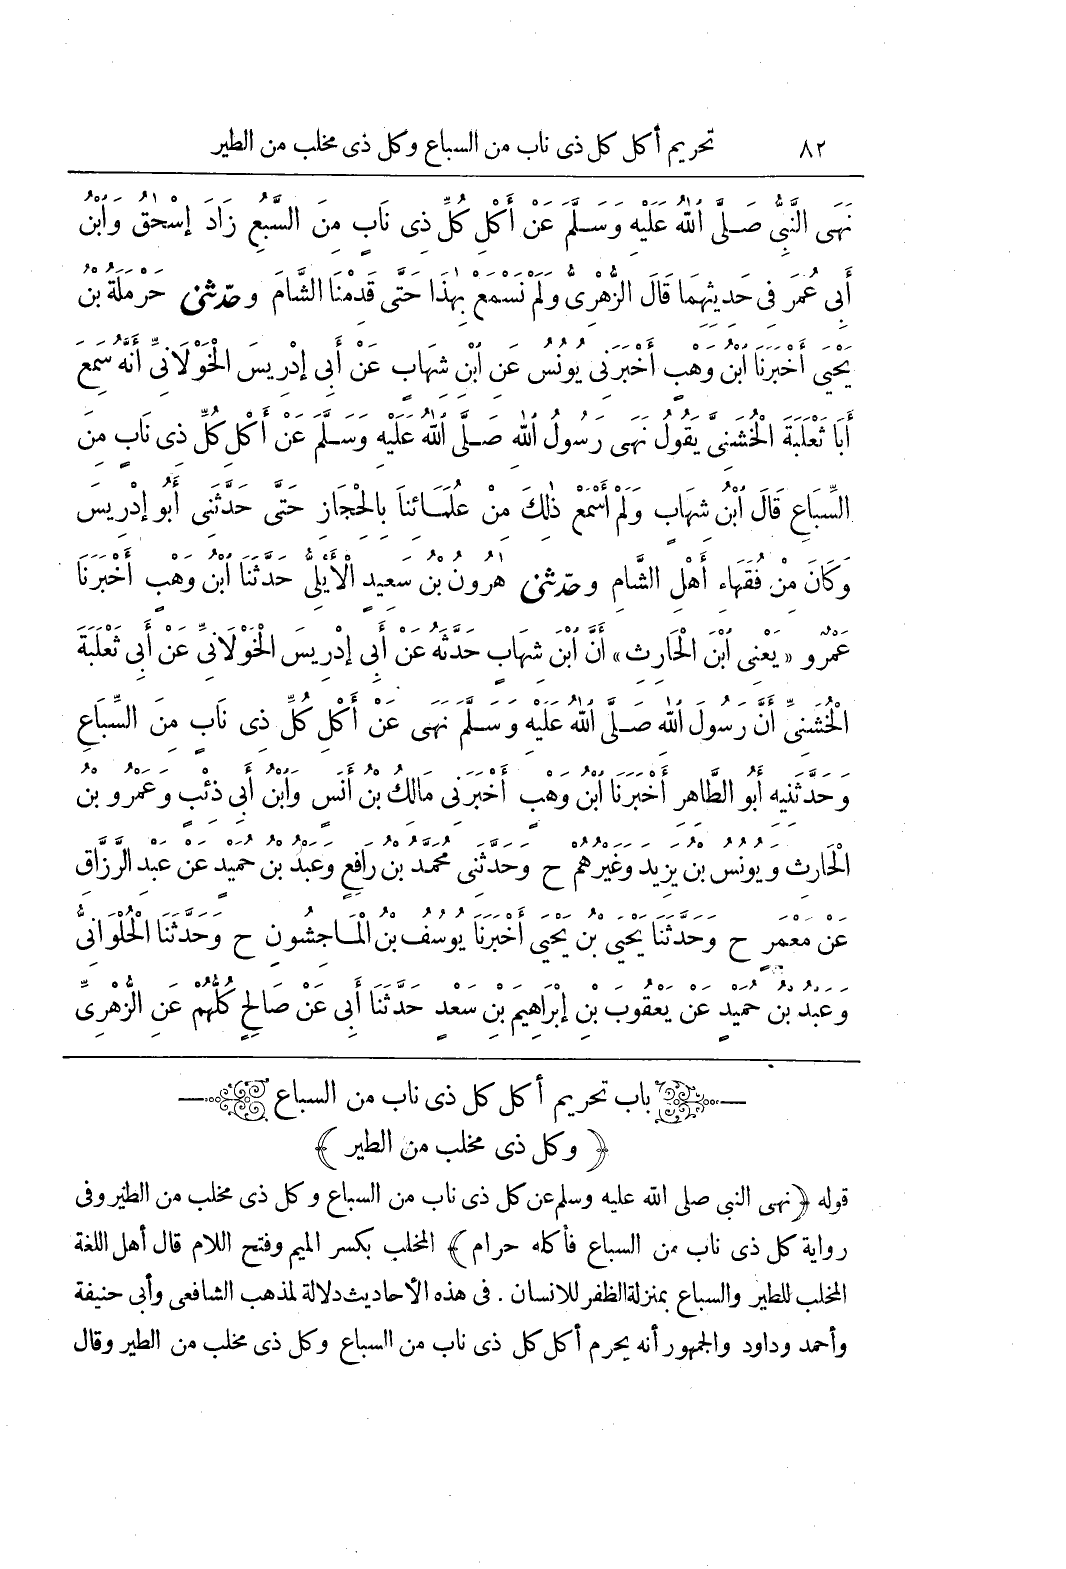 ٨٢ تحريم أكل كل ذى ناب من السباع وكل ذى مخلب من الطير
نَهَى النَّبِىُّ صَلَّى ٱللهُ عَلَيْهِ وَسَلَّمَ عَنْ أَكْلِ كُلِّ ذِى نَابٍ مِنَ السَّبُعِ زَادَ إِسْحٰقُ وَٱبْنُ
أَبِى عُمَرَ فِى حَدِيثِهِمَا قَالَ الزُّهْرِىُّ وَلَمْ نَسْمَعْ بِهٰذَا حَتَّى قَدِمْنَا الشَّامَ و حدّثنى حَرْمَلَةُ بْنُ
يَحْيَى أَخْبَرَنَا ٱبْنُ وَهْبٍ أَخْبَرَنِى يُونُسُ عَنِ ٱبْنِ شِهَابٍ عَنْ أَبِى إِدْرِيسَ الْخَوْلَانِىِّ أَنَّهُ سَمِعَ
أَبَا ثَعْلَبَةَ الْخُشَنِىَّ يَقُولُ نَهَى رَسُولُ ٱللهِ صَلَّى ٱللهُ عَلَيْهِ وَسَلَّمَ عَنْ أَكْلِ كُلِّ ذِى نَابٍ مِنَ
السِّبَاعِ قَالَ ٱبْنُ شِهَابٍ وَلَمْ أَسْمَعْ ذٰلِكَ مِنْ عُلَمَائِنَا بِالْحِجَازِ حَتَّى حَدَّثَنِى أَبُو إِدْرِيسَ
وَكَانَ مِنْ فُقَهَاءِ أَهْلِ الشَّامِ و حدّثنى هٰرُونُ بْنُ سَعِيدٍ الْأَيْلِىُّ حَدَّثَنَا ٱبْنُ وَهْبٍ أَخْبَرَنَا
عَمْرٌو « يَعْنِى ٱبْنَ الْحَارِثِ » أَنَّ ٱبْنَ شِهَابٍ حَدَّثَهُ عَنْ أَبِى إِدْرِيسَ الْخَوْلَانِىِّ عَنْ أَبِى ثَعْلَبَةَ
الْخُشَنِىِّ أَنَّ رَسُولَ ٱللهِ صَلَّى ٱللهُ عَلَيْهِ وَسَلَّمَ نَهَى عَنْ أَكْلِ كُلِّ ذِى نَابٍ مِنَ السِّبَاعِ
وَحَدَّثَنِيهِ أَبُو الطَّاهِرِ أَخْبَرَنَا ٱبْنُ وَهْبٍ أَخْبَرَنِى مَالِكُ بْنُ أَنَسٍ وَٱبْنُ أَبِى ذِئْبٍ وَعَمْرُو بْنُ
الْحَارِثِ وَيُونُسُ بْنُ يَزِيدَ وَغَيْرُهُمْ ح وَحَدَّثَنِى مُحَمَّدُ بْنُ رَافِعٍ وَعَبْدُ بْنُ حُمَيْدٍ عَنْ عَبْدِ الرَّزَّاقِ
عَنْ مَعْمَرٍ ح وَحَدَّثَنَا يَحْيَى بْنُ يَحْيَى أَخْبَرَنَا يُوسُفُ بْنُ الْمَاجِشُونِ ح وَحَدَّثَنَا الْحُلْوَانِىُّ
وَعَبْدُ بْنُ حُمَيْدٍ عَنْ يَعْقُوبَ بْنِ إِبْرَاهِيمَ بْنِ سَعْدٍ حَدَّثَنَا أَبِى عَنْ صَالِحٍ كُلُّهُمْ عَنِ الزُّهْرِىِّ
باب تحريم أكل كل ذى ناب من السباع
﴿ وكل ذى مخلب من الطير ﴾
قوله ﴿نهى النبى صلى الله عليه وسلم عن كل ذى ناب من السباع وكل ذى مخلب من الطير وفى
رواية كل ذى ناب من السباع فأكله حرام﴾ المخلب بكسر الميم وفتح اللام قال أهل اللغة
المخلب للطير والسباع بمنزلة الظفر للانسان . فى هذه الأحاديث دلالة لمذهب الشافعى وأبى حنيفة
وأحمد وداود والجمهور أنه يحرم أكل كل ذى ناب من السباع وكل ذى مخلب من الطير وقال